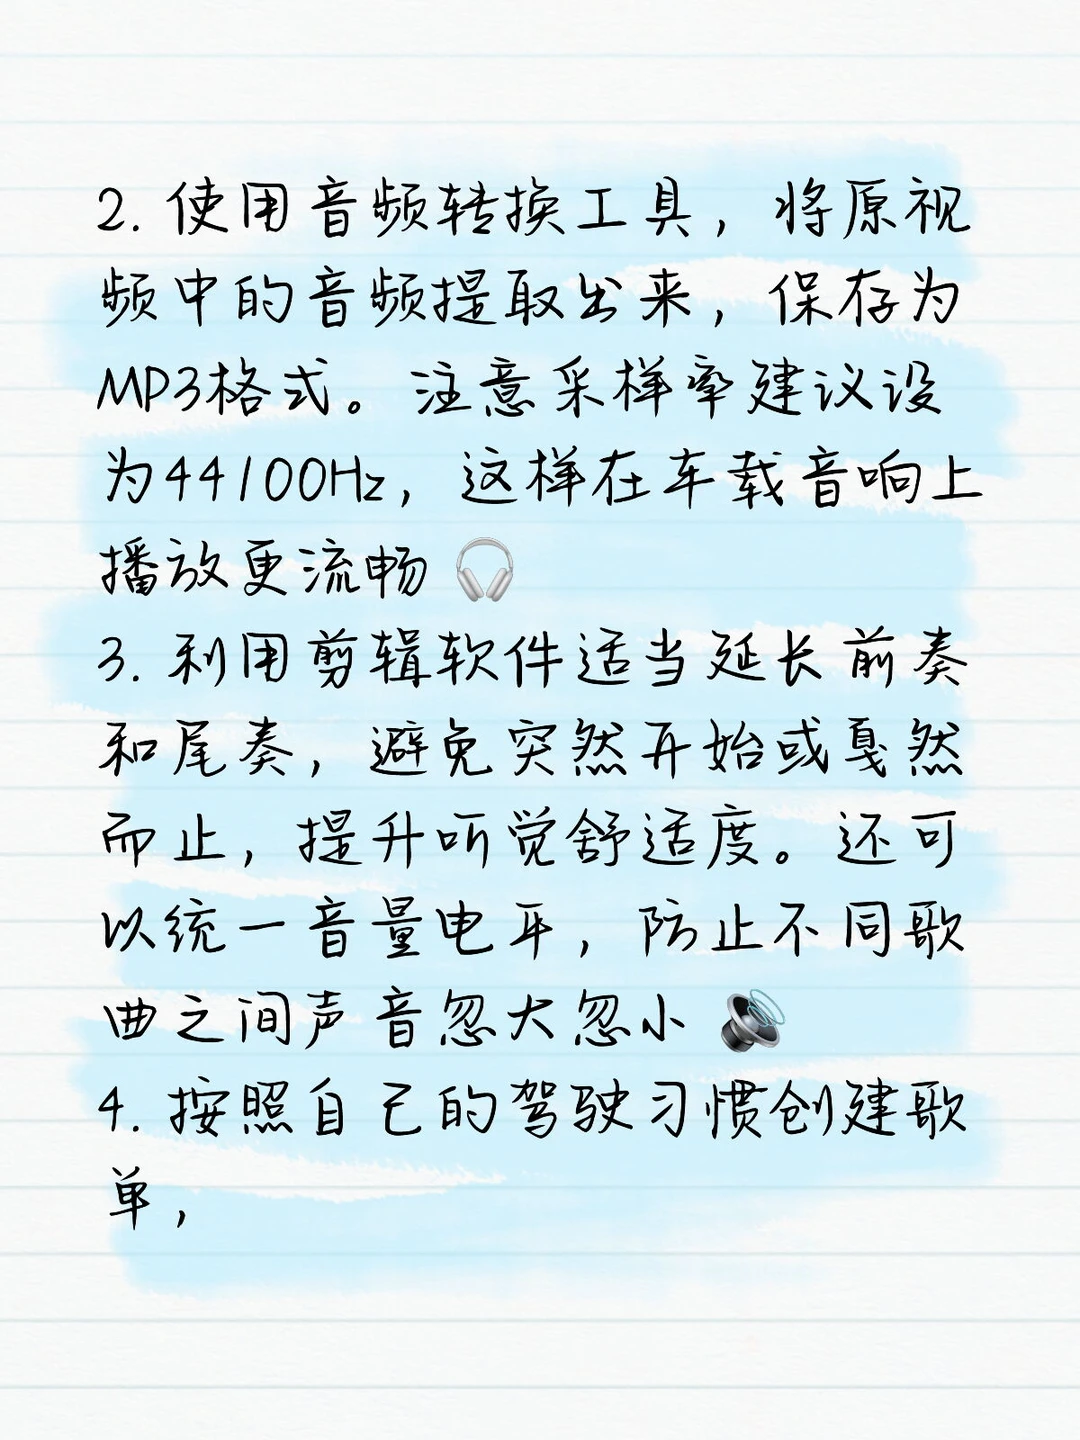 2. 使用音频转换工具，将原视
频中的音频提取出来，保存为
MP3格式。注意采样率建议设
为44100Hz，这样在车载音响上
播放更流畅 🎧
3. 利用剪辑软件适当延长前奏
和尾奏，避免突然开始或戛然
而止，提升听觉舒适度。还可
以统一音量电平，防止不同歌
曲之间声音忽大忽小 🔊
4. 按照自己的驾驶习惯创建歌
单，